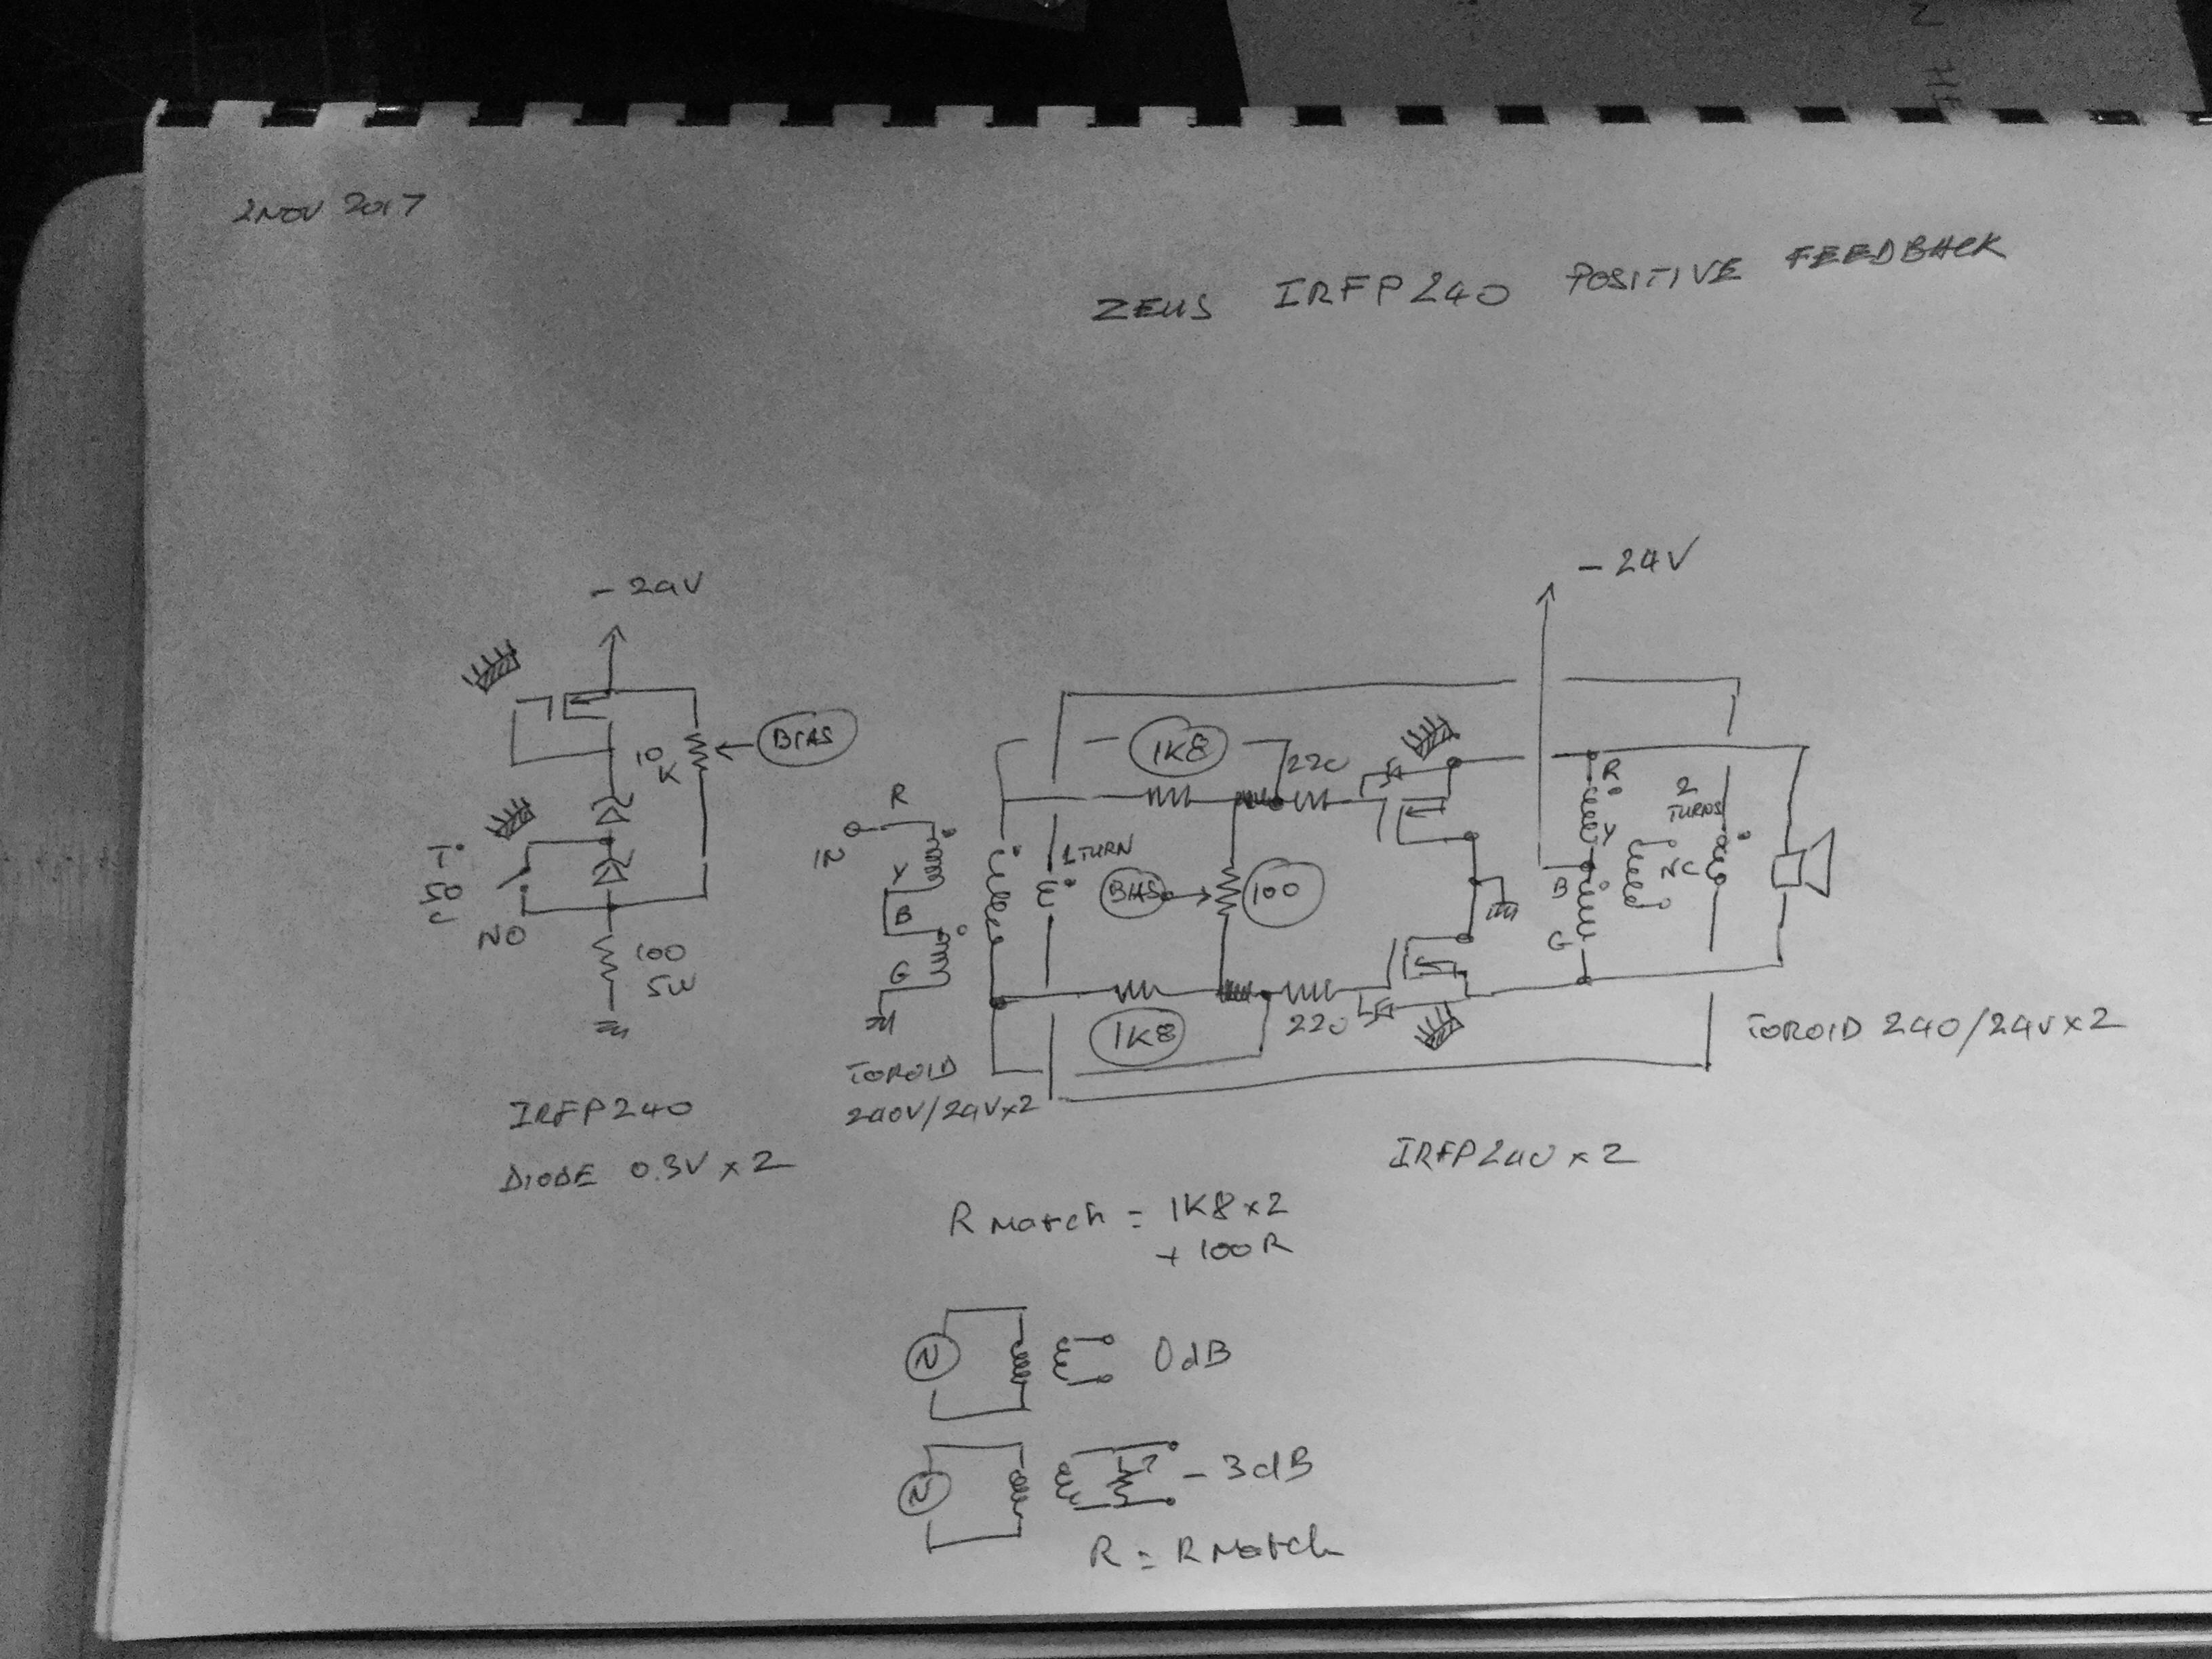 2 NOV 2017
ZEUS IRFP240 POSITIVE FEEDBACK
- 24V
- 24V
BIAS
10
K
T°
50
C
NO
100
5W
IRFP240
DIODE 0.3V x 2
IN
R
Y
B
G
TOROID
240V/24V x2
1 TURN
1K8
220
BIAS
100
1K8
220
R
Y
B
G
NC
2
TURNS
TOROID 240/24V x 2
IRFP240 x 2
R MATCH = 1K8 x 2
+ 100 R
0 dB
- 3 dB
R = R MATCH